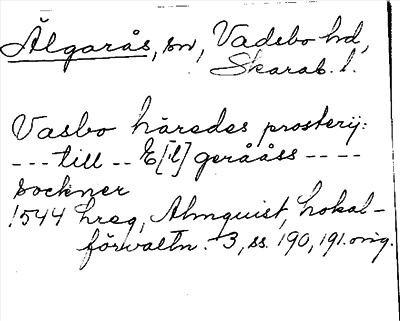 Älgarås, sn, Vadsbo hd,
Skarab. l.
Vasbo häredes prosterij:
--- till -- E[l]geråås ----
sockner
1544 hreg, Almquist, Lokal-
förvaltn. 3, ss. 190, 191. orig.